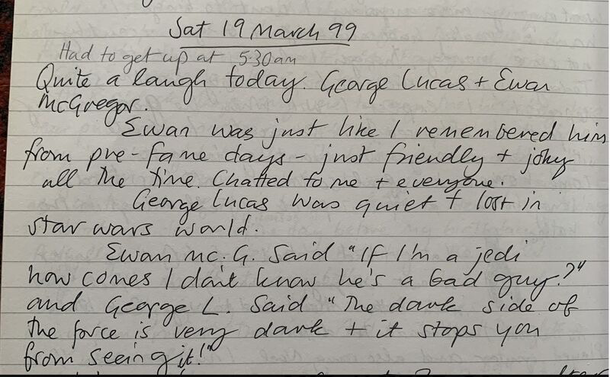 Sat 19 March 99
Had to get up at 5:30am
Quite a laugh today. George Lucas + Ewan
McGregor.
Ewan was just like I remembered him
from pre-fame days - just friendly + joky
all the time. Chatted to me + everyone.
George Lucas was quiet + lost in
star wars world.
Ewan mc.G. Said "If I'm a jedi
how comes I don't know he's a bad guy?"
and George L. Said "The dark side of
the force is very dark + it stops you
from seeing it!"